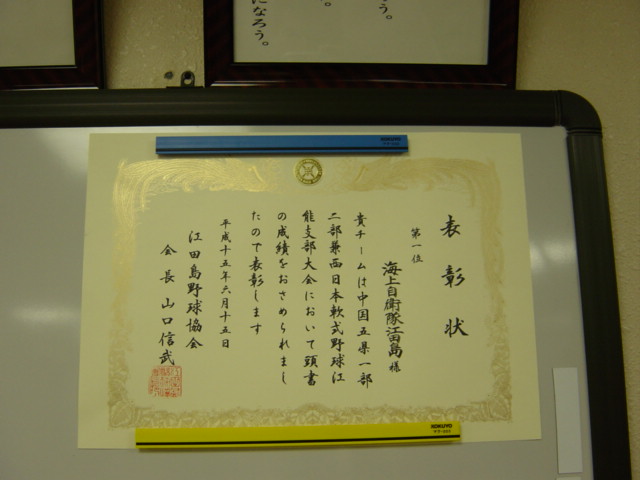 になろう。
。
う。
KOKUYO
表彰状
第一位
海上自衛隊江田島様
貴チームは中国五県一部
二部兼西日本軟式野球江
能支部大会において頭書
の成績をおさめられまし
たので表彰します
平成十五年六月十五日
江田島野球協会
会長山口信武
KOKUYO